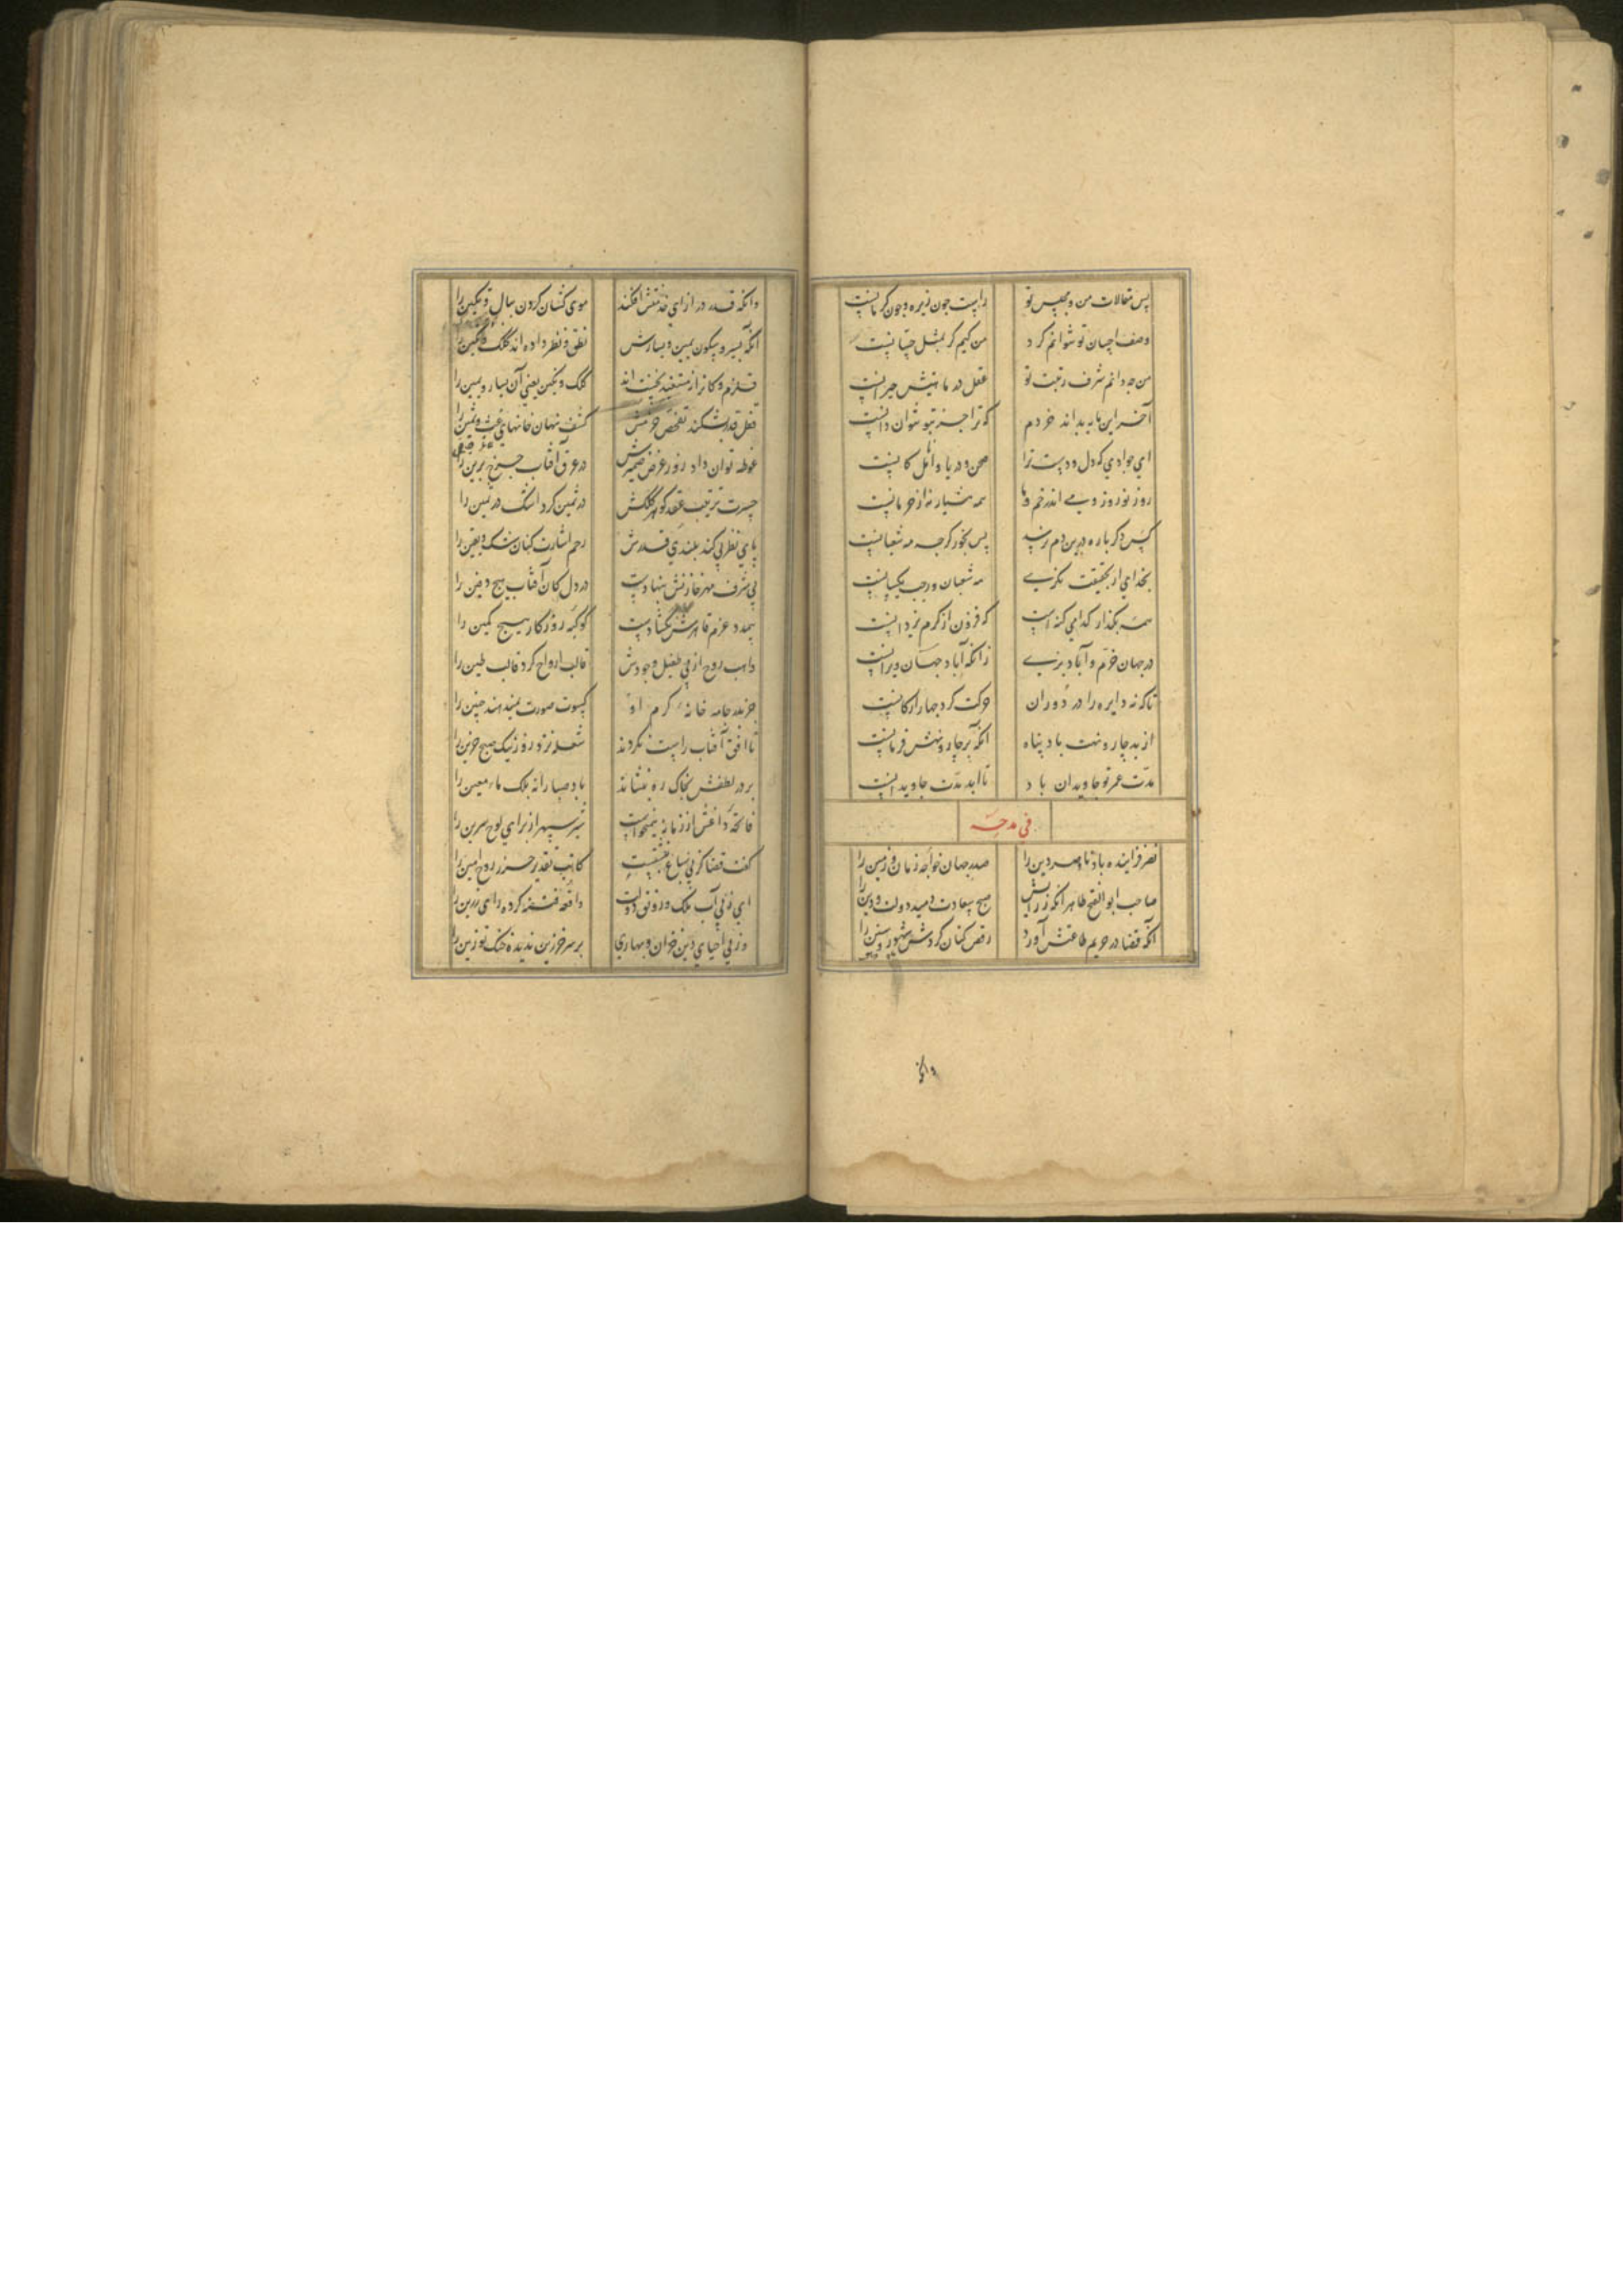 پس مقالات من و مجلس تو راست چون زیره و چون کرمانست
وصف احسان تو نتوانم کرد من کیم گر بمثل حسانست
من چه دانم شرف رتبت تو عقل در ماهیتش حیرانست
آخر این مایه بداند خردم که ترا جز بتو نتوان دانست
ای جوادی که دل و دست ترا صحن دریا و انامل کانست
روز نوروز و می اندر خم و ما همه هشیار نه از حرمانست
کس دگر باره درین دم نرسد پس بخور گرچه مه شعبانست
بخدای ار بحقیقت نگری مه شعبان و رجب یکسانست
همه بگذار کدامی گنه است که فزون از کرم یزدانست
در جهان خرم و آباد بزی زانکه آباد جهان ویرانست
تا که نه دایره را در دوران حرکت گرد چهار ارکانست
از بد چار و نهت باد پناه آنکه بر چار و نهش فرمانست
مدت عمر تو جاویدان باد تا ابد مدت جاویدانست
فی مدحه
نصر فزاینده باد ناصر دین را صدر جهان خواجه زمان و زمین را
صاحب ابو الفتح طاهر آنکه ز رایش صبح سعادت دمید دولت و دین را
آنکه قضا در حریم طاعتش آورد رقص کنان گردش شهور و سنین را
وانکه
وانکه قدر در ازای خدمتش افکند موی کشان گردن ینال و تکین را
آنکه بسیر و سکون یمین و یسارش نطق و نظر داده‌اند کلک و نگین را
قلزم و کانرا نه مستفید نخست‌اند کلک و نگین یعنی آن یسار و یمین را
قفل قدر بشکند تفحص حزمش کشف نهان خانهای غث و سمین را
غوطه توان داد روز عرض ضمیرش در عرق آفتاب چرخ برین را
حسرت ترتیب عقد گوهر کلکش در ثمین کرد اشک در ثمین را
پای نظر پی کند بلندی قدرش رجم اشارت کنان شک و یقین را
بی شرف مهر خازنش ننهادست در دل کان آفتاب هیچ دفین را
بی مدد عزم قاهرش نگشادست کوکبه روزگار هیچ کمین را
واهب روح از پی طفیل وجودش قالب ارواح کرد قالب طین را
جز بدر جامه خانه کرم او کسوت صورت نمیدهند جنین را
تا افق آفتاب راست نکردند شعله نزد روز نیک هیچ حزین را
بر در لطفش بخاک ره بنشاند باد صبا را نه بلک ماء معین را
فاتحه داغش از زمانه همی‌خواست شیر سپهر از برای لوح سرین را
گفت قضا کز پی سباع نبشتست کاتب تقدیر حرز روح امین را
ای ز پی آب ملک و رونق دولت واقعه فتنه کرده رای رزین را
وز پی احیای دین خزان و بهاری بر سر خر زین ندیده خنگ تو زین را